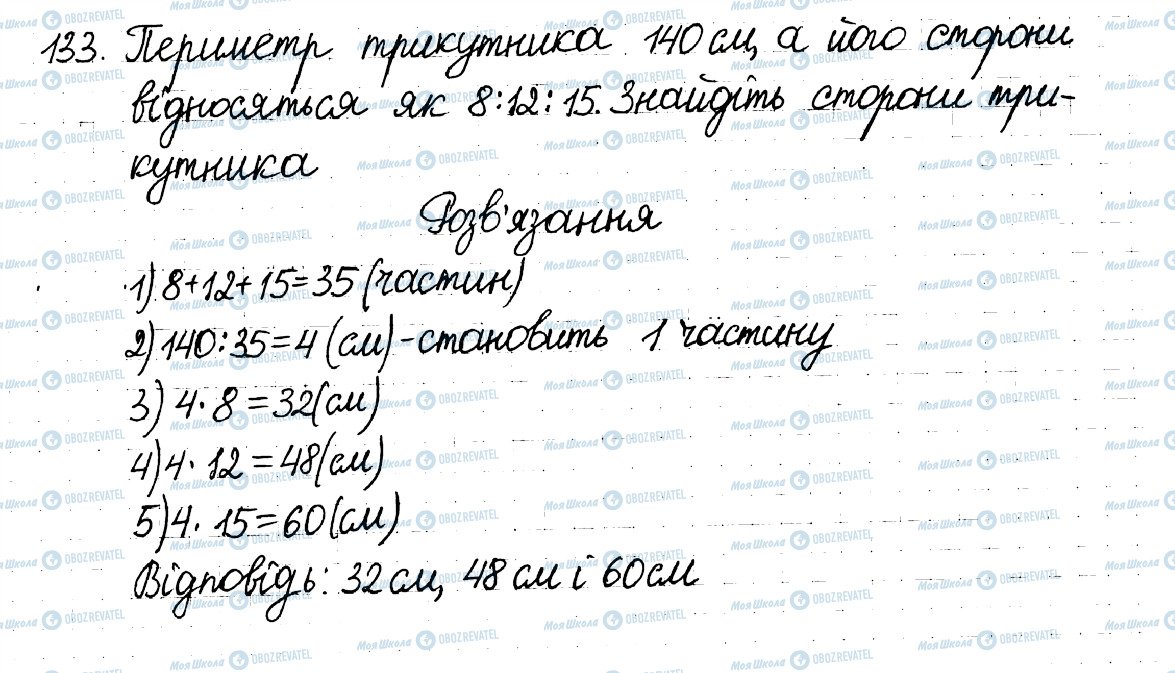 133. Периметр трикутника 140 см, а його сторони
відносяться як 8:12:15. Знайдіть сторони три-
кутника
Розв'язання
1) 8+12+15=35 (частин)
2) 140:35=4 (см) - становить 1 частину
3) 4·8=32(см)
4) 4·12=48(см)
5) 4·15=60(см)
Відповідь: 32 см, 48 см і 60 см
Моя Школа OBOZREVATEL